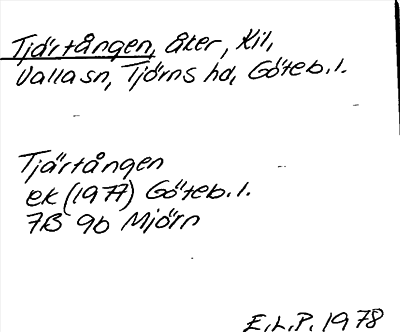 Tjärtången, åker, Kil,
Valla sn, Tjörns hd, Göteb. l.
Tjärtången
ek (1977) Göteb. l.
7B 9b Mjörn
E.L.P. 1978